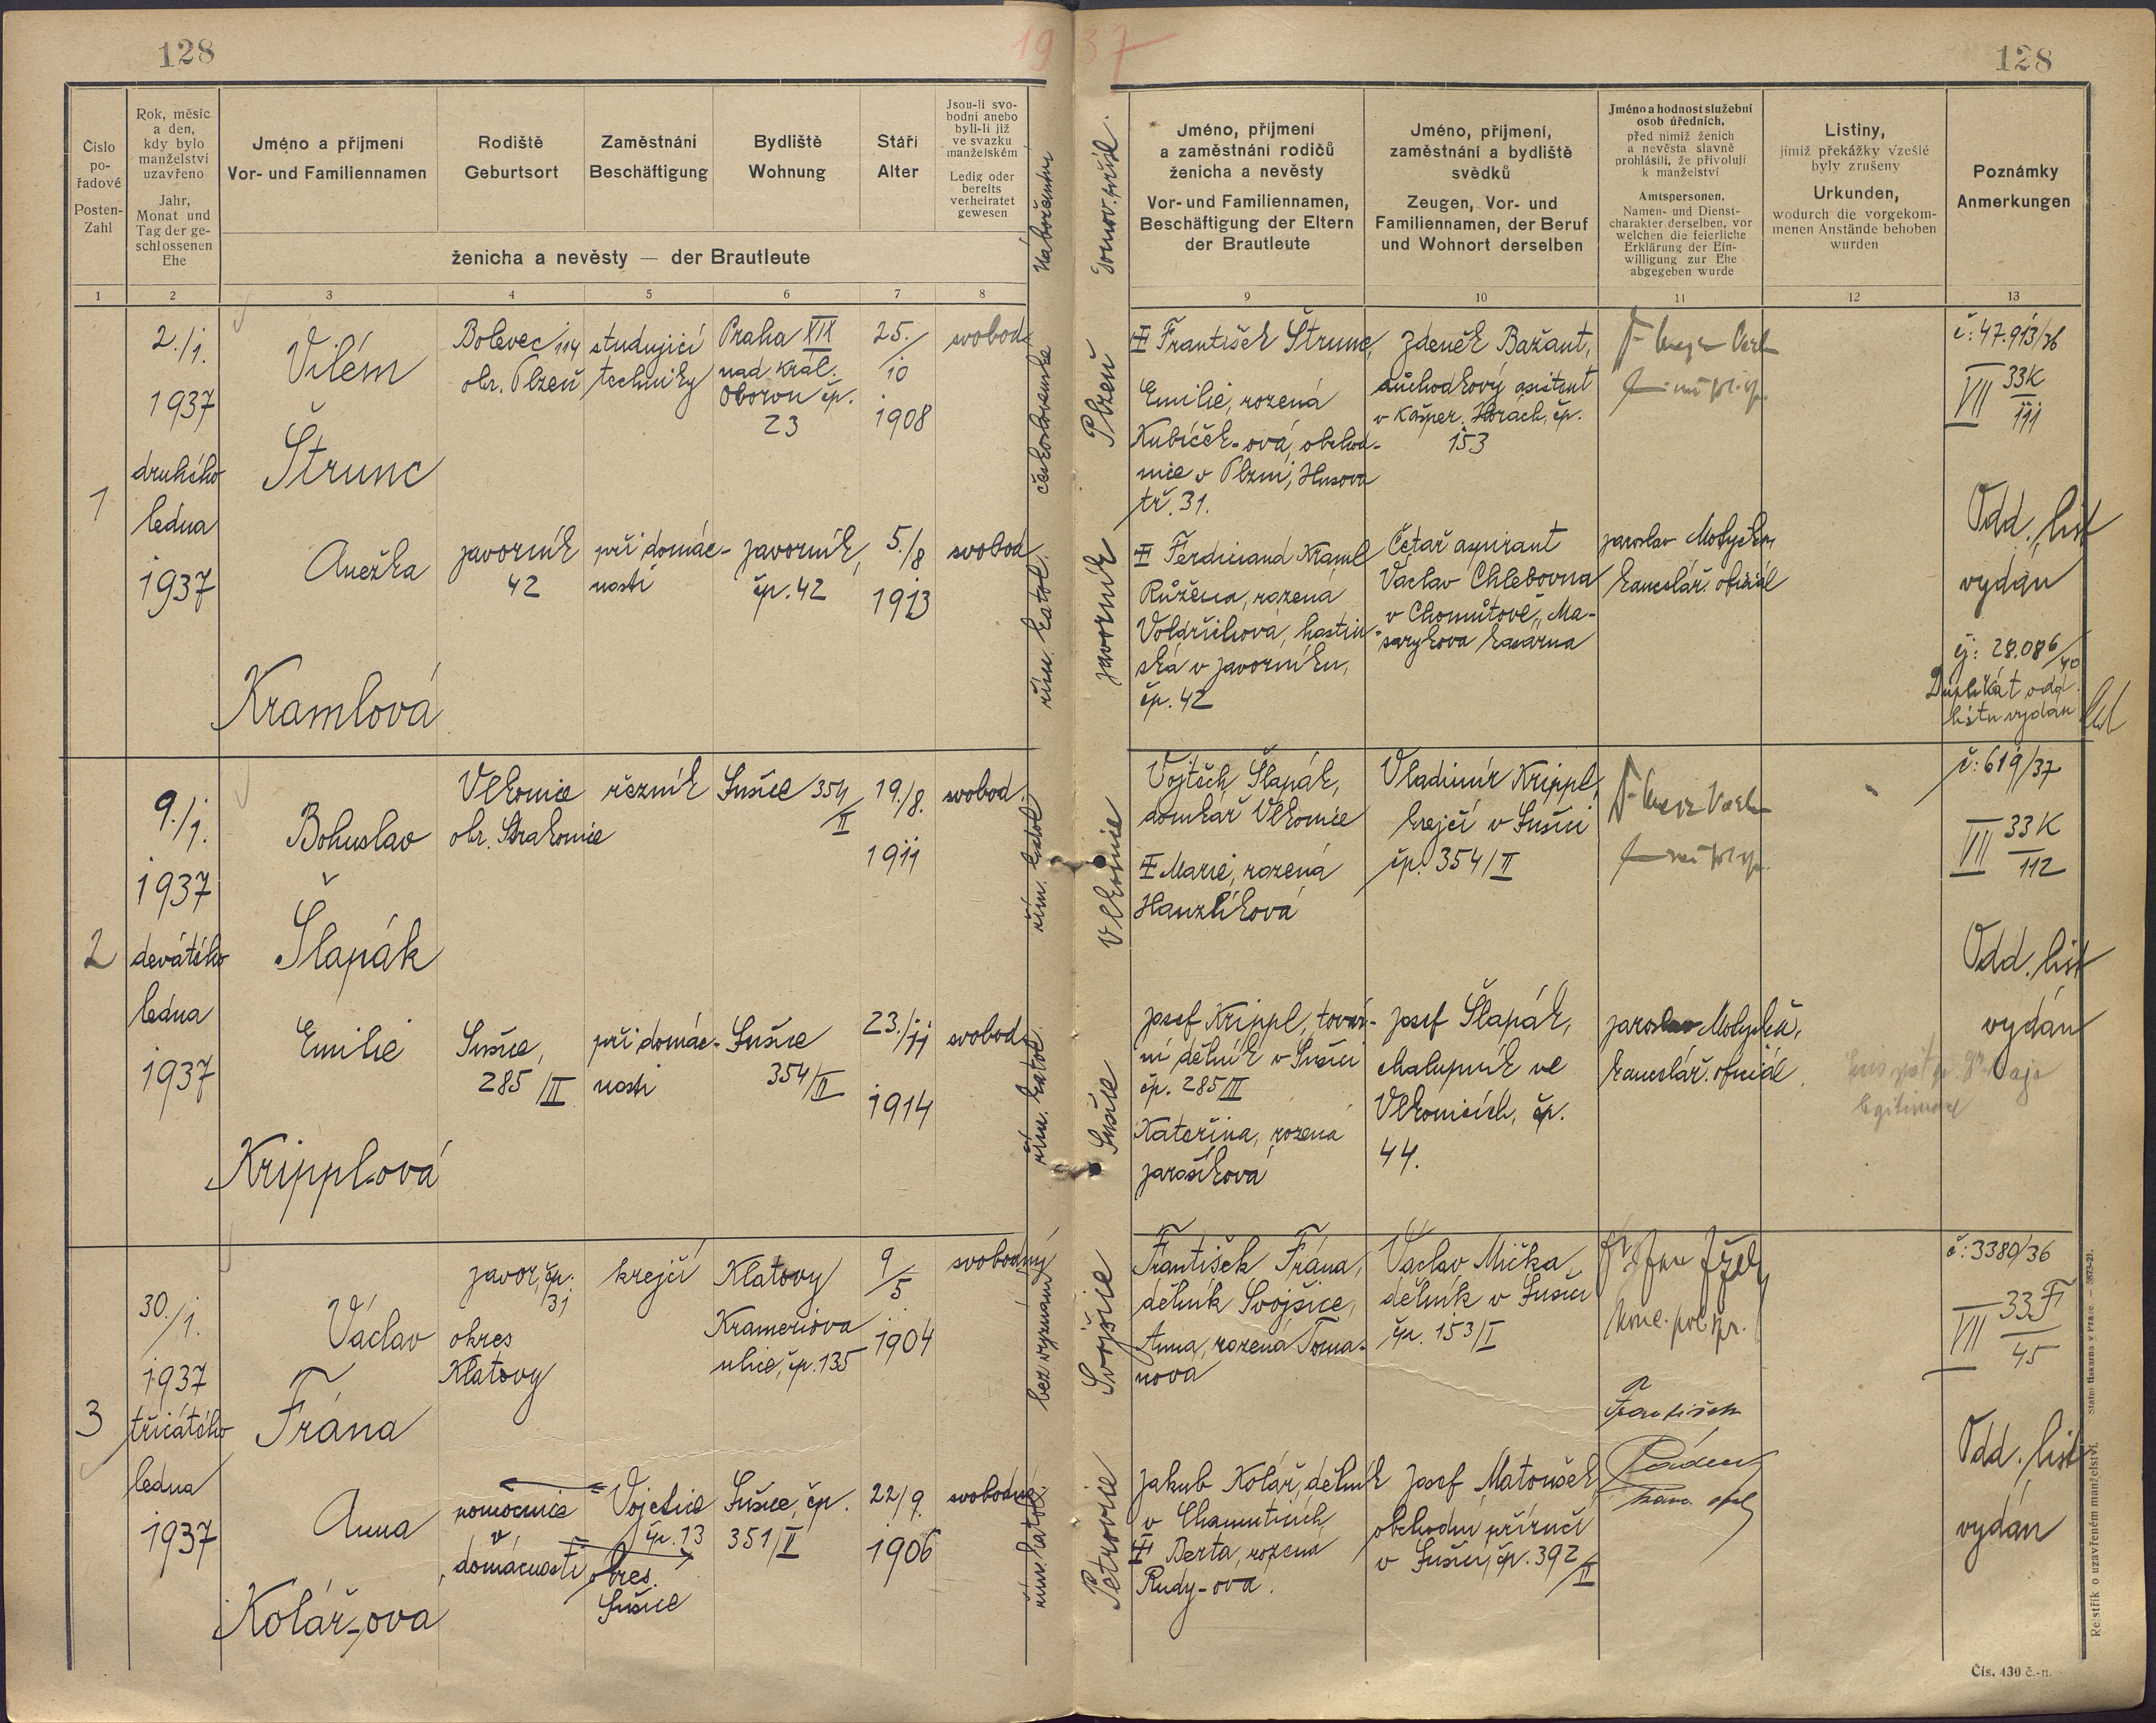 128
1937
128
Číslo pořadové
Posten-Zahl
Rok, měsíc a den, kdy bylo manželství uzavřeno
Jahr, Monat und Tag der geschlossenen Ehe
Jméno a příjmení
Vor- und Familiennamen
Rodiště
Geburtsort
Zaměstnání
Beschäftigung
Bydliště
Wohnung
ženicha a nevěsty — der Brautleute
Stáří
Alter
Jsou-li svobodni anebo byli-li již ve svazku manželském
Ledig oder bereits verheiratet gewesen
Náboženství
Domov. přísl.
Jméno, příjmení
a zaměstnání rodičů
ženicha a nevěsty
Vor- und Familiennamen,
Beschäftigung der Eltern
der Brautleute
Jméno, příjmení,
zaměstnání a bydliště
svědků
Zeugen, Vor- und
Familiennamen, der Beruf
und Wohnort derselben
Jméno a hodnost služební
osob úředních,
před nimiž ženich
a nevěsta slavně
prohlásili, že přivolují
k manželství
Amtspersonen,
Namen- und Dienst-
charakter derselben, vor
welchen die feierliche
Erklärung der Ein-
willigung zur Ehe
abgegeben wurde
Listiny,
jimiž překážky vzešlé
byly zrušeny
Urkunden,
wodurch die vorgekom-
menen Anstände behoben
wurden
Poznámky
Anmerkungen
1 2 3 4 5 6 7 8 9 10 11 12 13
1
2./1.
1937
druhého
ledna
1937
Vilém
Štrunc
Bolevec 114
okr. Plzeň
studující
techniky
Praha XIX
nad Král.
Oborou čp.
23
25./
10
1908
svobod.
československé
Plzeň
František Štrunc,
Emilie, rozená
Kubíček-ová, obchod-
nice v Plzni, Husova
tř. 31.
Zdeněk Bažant,
důchodkový asistent
v Kašper. Horách, čp.
153
č: 47.913/36
VII 33K
111
Odd. list
vydán
Anežka
Kramlová
Javorník
42
při domác-
nosti
Javorník,
čp. 42
5./8
1913
svobod.
řím. katol.
Javorník
Ferdinand Kraml
Růžena, rozená
Voldřichová, hostin-
ská v Javorníku,
čp. 42
Četař aspirant
Václav Chlebovna
v Chomutově, Ma-
sarykova kasárna
Jaroslav Motyčka
kancelář. oficiál
čj: 28.086/40
Duplikát odd.
listu vydán
2
9./1.
1937
devátého
ledna
1937
Bohuslav
Šlapák
Vlkonice
okr. Strakonice
řezník
Sušice 354
II
19./8.
1911
svobod.
řím. katol.
Vlkonice
Vojtěch Šlapák,
domkář Vlkonice
Marie, rozená
Hanzlíková
Vladimír Krippl,
krejčí v Sušici
čp. 354/II
č: 619/37
VII 33K
112
Odd. list
vydán
Emilie
Krippl-ová
Sušice,
285/III
při domác-
nosti
Sušice
354/II
23./11
1914
svobod.
řím. katol.
Sušice
Josef Krippl, továr-
ní dělník v Sušici
čp. 285/III
Kateřina, rozená
Jarošíková
Josef Šlapák,
chalupník ve
Vlkonicích, čp.
44.
Jaroslav Motyčka,
kancelář. oficiál
3
30./1.
1937
třicátého
ledna
1937
Václav
Frána
Javor, čp.
31
okres
Klatovy
krejčí
Klatovy
Krameriova
ulice, čp. 135
9/5
1904
svobodný
bez vyznání
Svojšice
František Frána,
dělník Svojšice,
Anna, rozená Toma-
nova
Václav Mička,
dělník v Sušici
čp. 153/I
č: 3380/36
VII 33F
45
Odd. list
vydán
Anna
Kolář-ova
pomocnice
v
domácnosti
Vojetice
čp. 13
okres
Sušice
Sušice, čp.
351/II
22/9.
1906
svobodná
řím. katol.
Petrovice
Jakub Kolář, dělník
v Chamuticích
Berta, rozená
Rudy-ova.
Josef Matoušek
obchodní příručí
v Sušici, čp. 392/II
František
Rejstřík o uzavřeném manželství. Státní tiskárna v Praze. — 5873-21.
Čís. 430 č.-n.